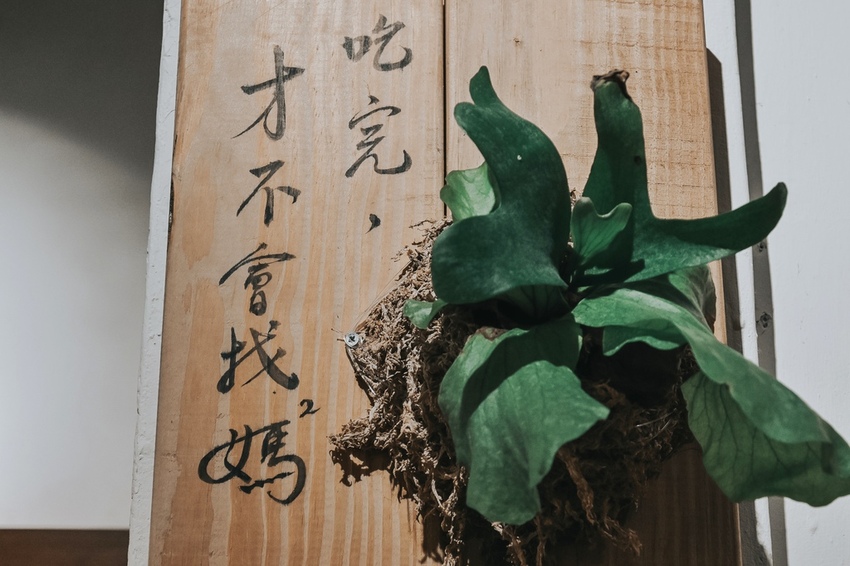 吃完，
才不會找媽²